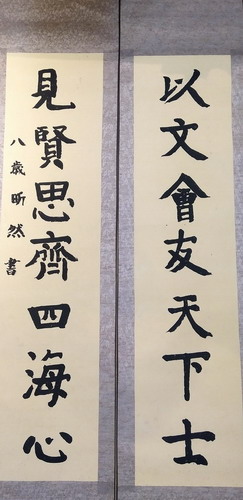 以文會友天下士
見賢思齊四海心
八歲昕然書